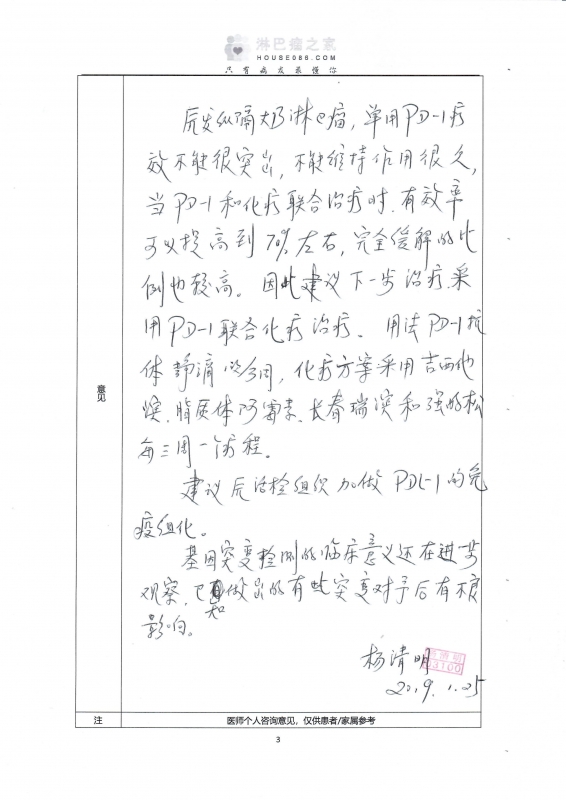 淋巴瘤之家
HOUSE086.COM
只有病友最懂你
原发纵隔大B淋巴瘤，单用PD-1疗
效不能很突出，不能维持作用很久，
当PD-1和化疗联合治疗时，有效率
可以提高到70%左右，完全缓解的比
例也较高。因此建议下一步治疗采
用PD-1联合化疗治疗。用法PD-1抗
体静滴，化疗方案采用吉西他
滨、脂质体阿霉素、长春瑞滨和强的松
每三周一疗程。
建议原活检组织加做PDL-1的免
疫组化。
基因突变检测的临床意义还在进一步
观察，已知做出的有些突变对予后有不良
影响。
杨清明
2019.1.25
意见
注
医师个人咨询意见，仅供患者/家属参考
3